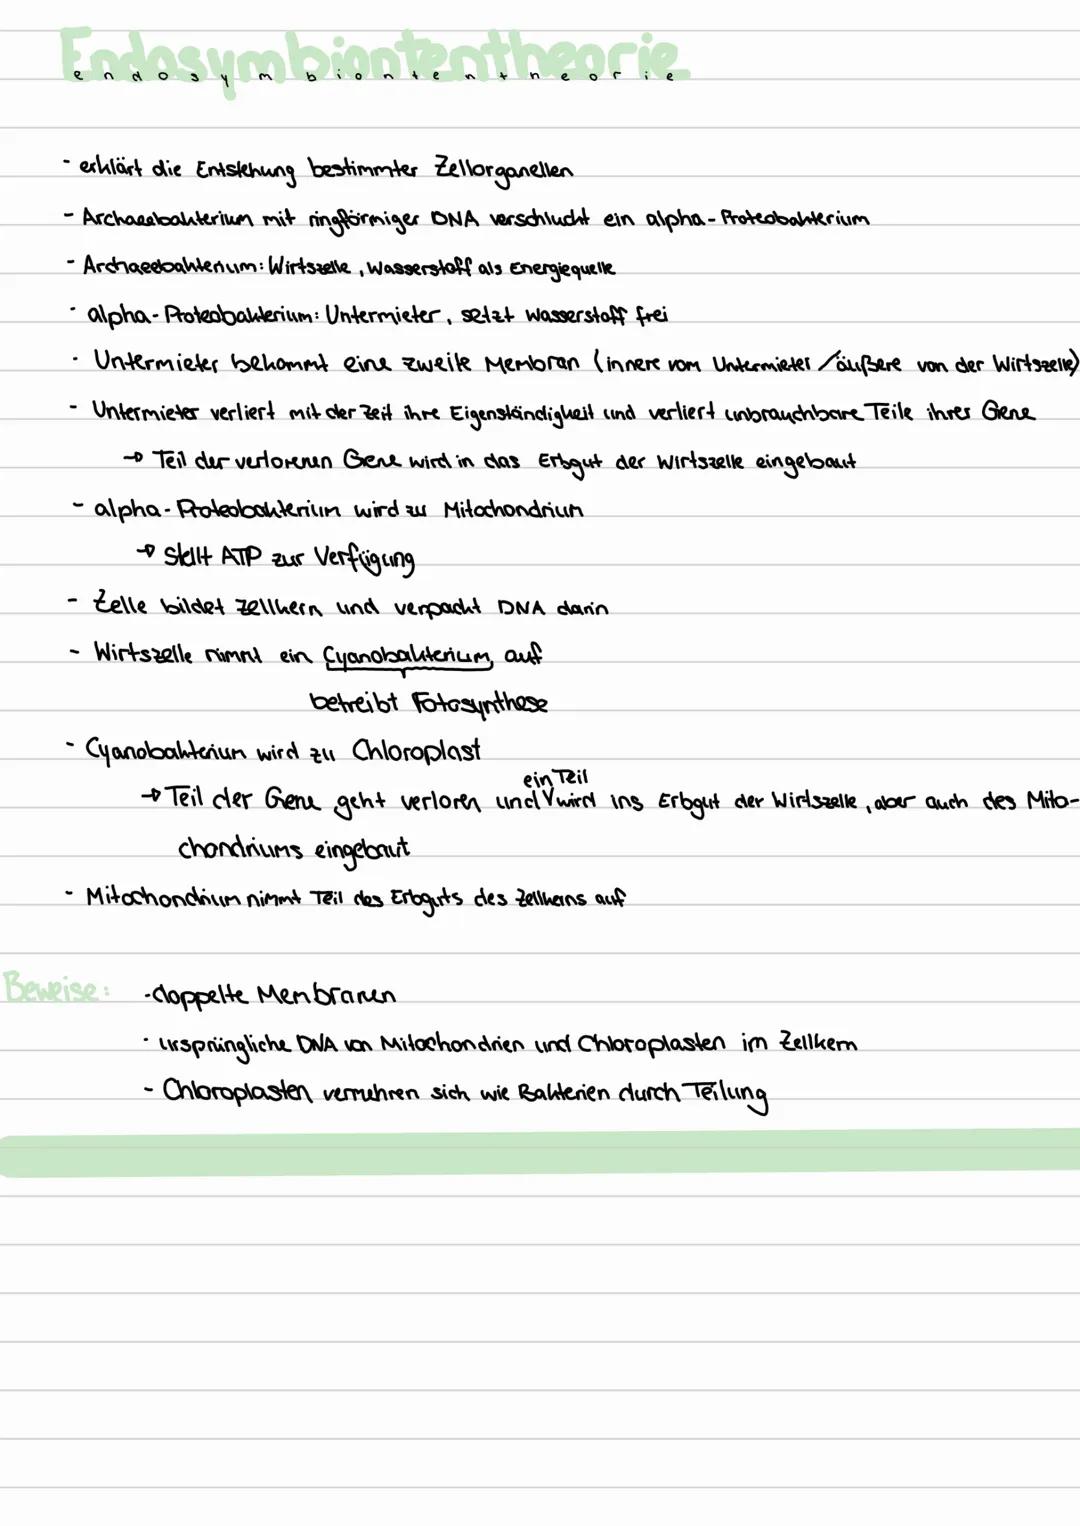 Endosymbiontentheorie
endosymbiontentheorie
- erklärt die Entstehung bestimmter Zellorganellen
- Archaeebakterium mit ringförmiger DNA verschluckt ein alpha-Proteobakterium
- Archaeebakterium: Wirtszelle, Wasserstoff als Energiequelle
- alpha-Proteobakterium: Untermieter, setzt Wasserstoff frei
- Untermieter bekommt eine zweite Membran (innere vom Untermieter / äußere von der Wirtszelle)
- Untermieter verliert mit der Zeit ihre Eigenständigkeit und verliert unbrauchbare Teile ihrer Gene
→ Teil der verlorenen Gene wird in das Erbgut der Wirtszelle eingebaut
- alpha-Proteobakterium wird zu Mitochondrium
→ Stellt ATP zur Verfügung
- Zelle bildet Zellkern und verpackt DNA darin
- Wirtszelle nimmt ein Cyanobakterium auf
betreibt Fotosynthese
- Cyanobakterium wird zu Chloroplast
ein Teil
→ Teil der Gene geht verloren und V wird ins Erbgut der Wirtszelle, aber auch des Mito-
chondriums eingebaut
- Mitochondrium nimmt Teil des Erbguts des Zellkerns auf
Beweise: - doppelte Membranen
- ursprüngliche DNA von Mitochondrien und Chloroplasten im Zellkern
- Chloroplasten vermehren sich wie Bakterien durch Teilung